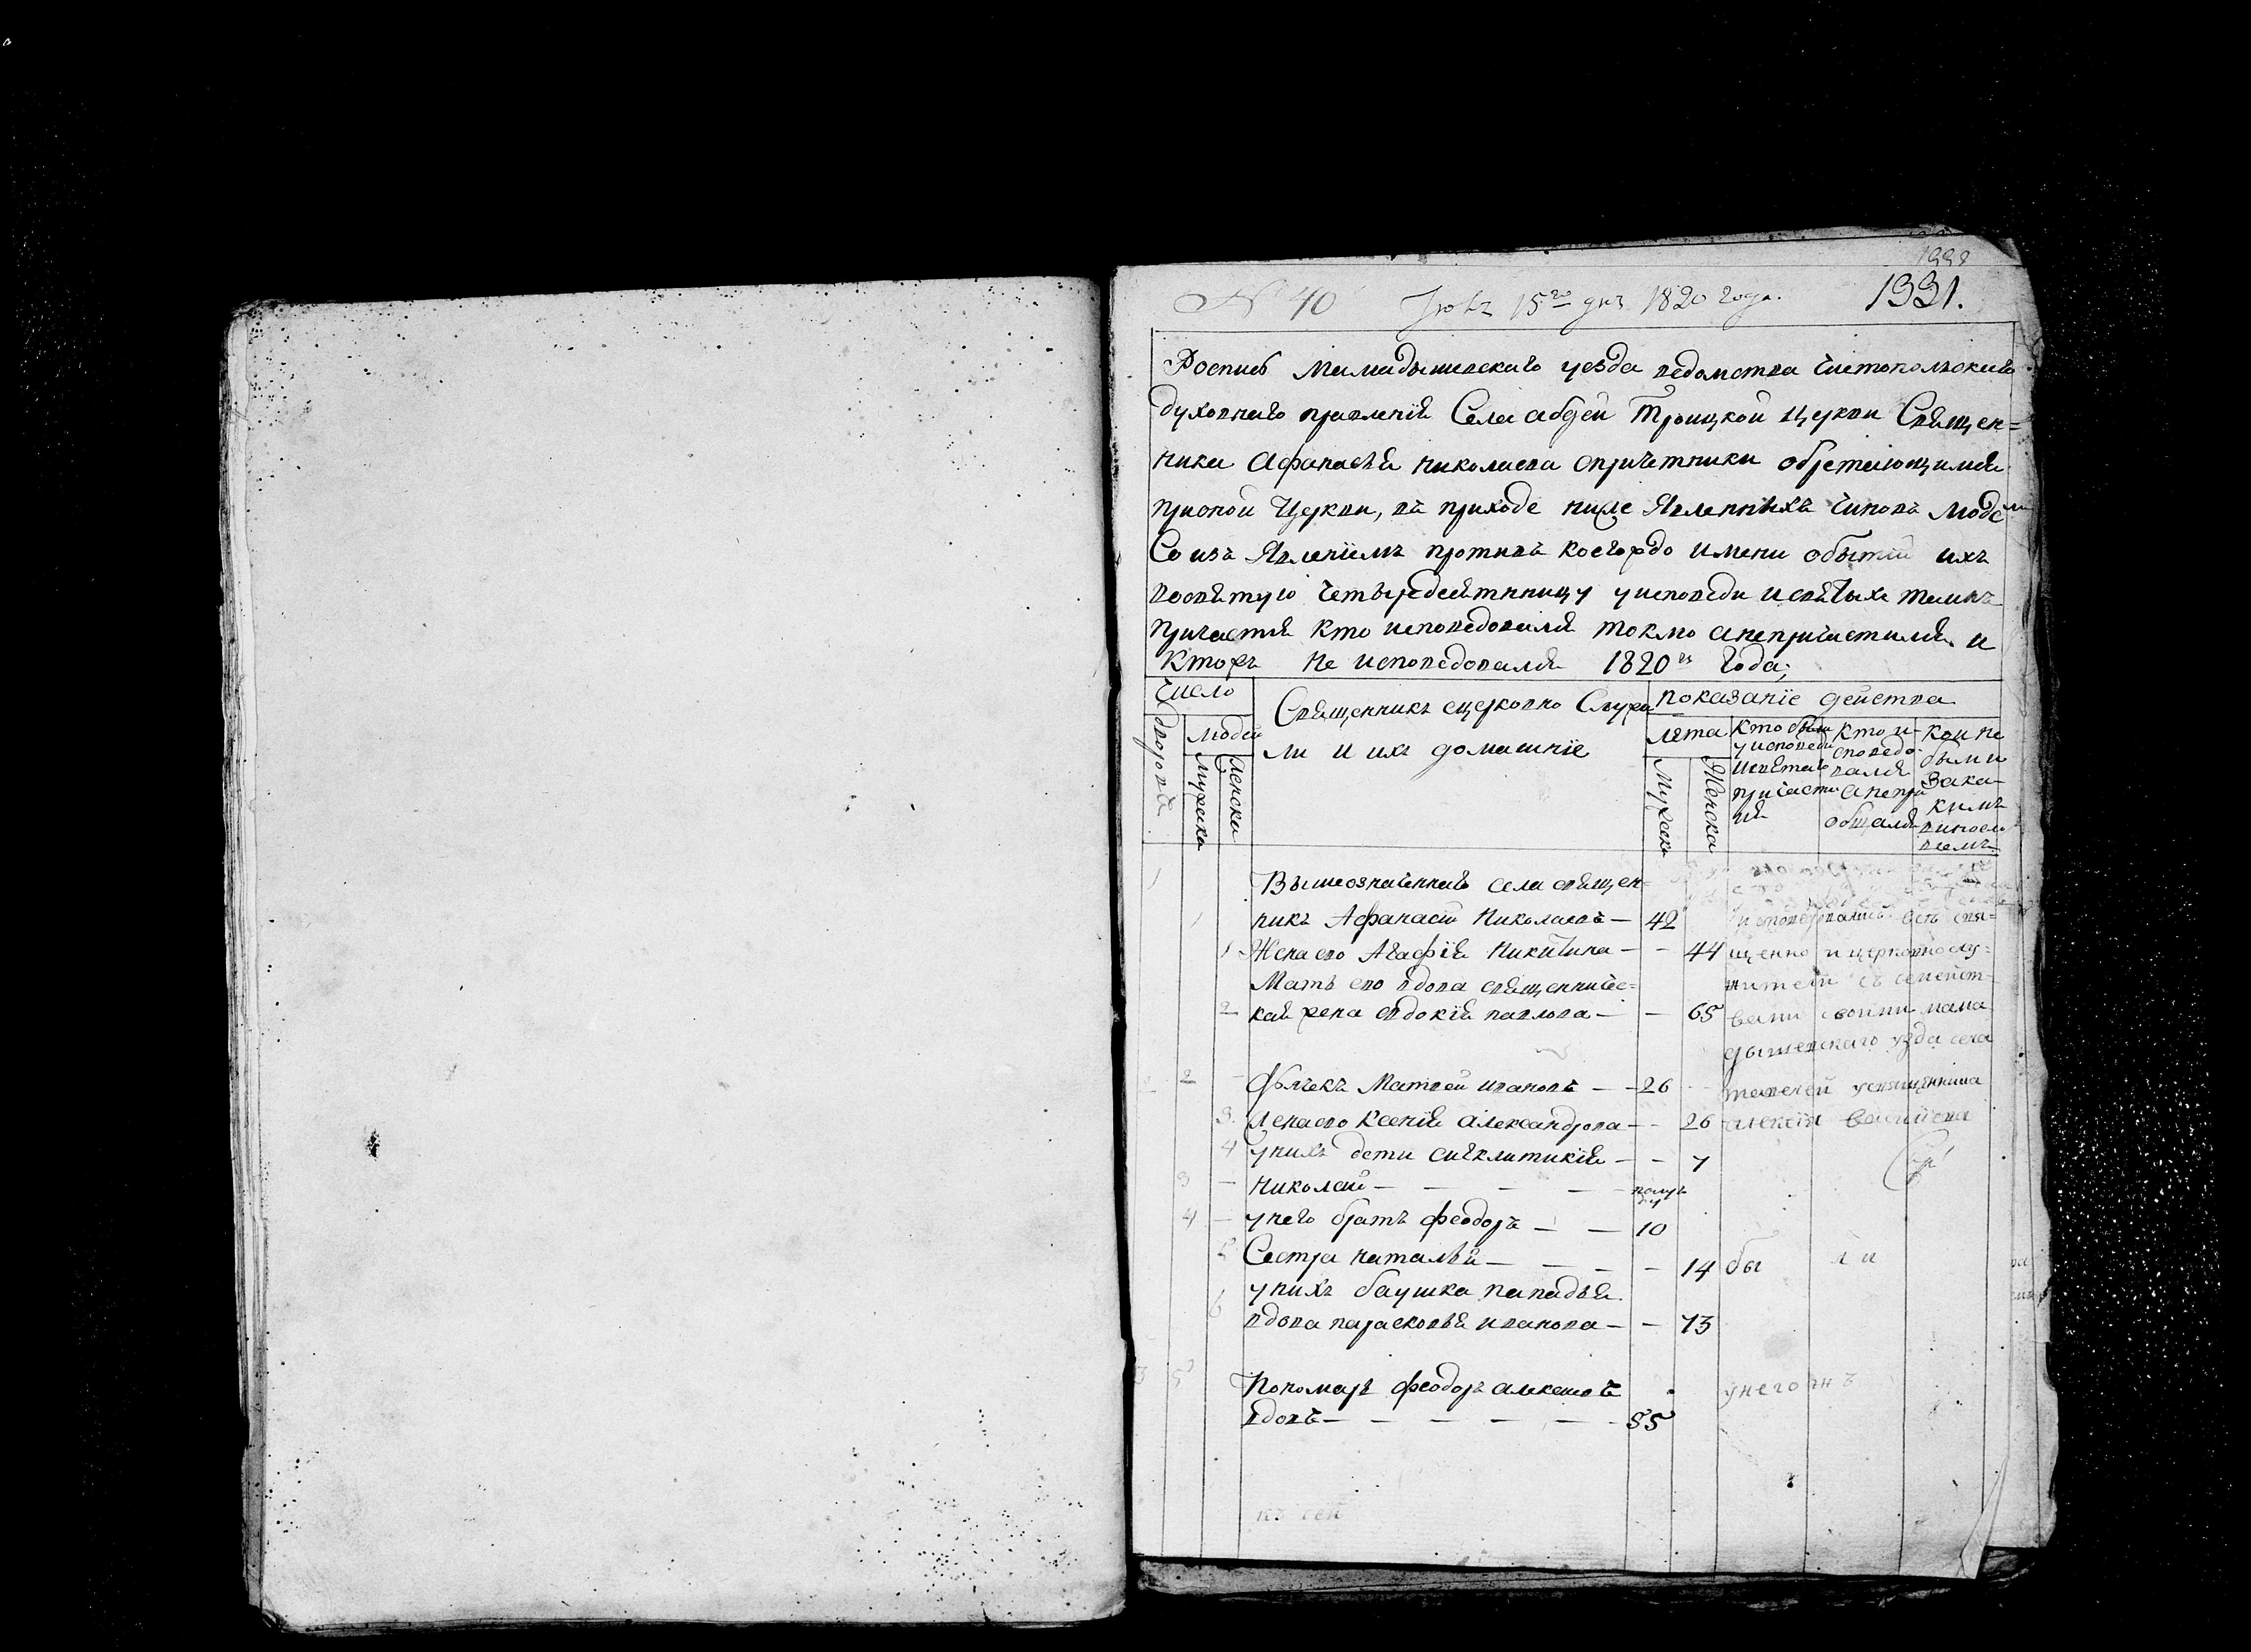 1998
№ 40 15го дня 1820 года. 1931.
Роспись Мамадышевскаго уезда ведомства Чистопольскаго
духовнаго правленїя Села абдей Троицкой Церкви Священ=
ника Афанасья Николаева спричетники обретающимися
прионой Церкви, въ приходе ниже Явленныхъ чиновъ людеми
Со изъ Явленїемъ противъ коегождо имени обытїи ихъ
восвятую четыредесятницу уисповеди исвятыхъ таинъ
Причастия кто исповедовался токмо анепричастился и
Ктожъ не исповедовался 1820го Года;
Число
Священникъ ецерковно Служи
показанїе действа
дворовъ
людей
ли и ихъ домашнїе
лета
Кто были
уисповеди
исвятаго
причасти
ия
Кто и-
споведо-
вался
анепри
общался
кои не
были и
Зака-
кимъ
винос
вїемъ
мужеска
женска
Мужеска
Женска
1 Вышеозначеннаго села священ=
1 никъ Афанасїи Николаевъ — 42 исповедовались всѣ свя=
1 Жена ево Агафїя Никитина — - 44 щенно и церковнослу=
Мать ево вдова священниче= жители съ семейст-
2 кая жена евдокїя павлова — — 65 вами своими мама
дышевскаго уѣзда села
2 2 — Дьячекъ Матвеи ивановъ — - 26 - - усвященника
3. Женаево Ксенїя александрова — - 26 алексїя василїева
4 унихъ дети сигклитикїя — - 7
3 — Николаи — — — — полугоду
4 — унего братъ феодоръ — — 10
5 Сестра наталья — — — - 14 бы ли
6 унихъ баушка пападья
вдова парасковья иванова — — 73
3 5 Пономарь феодоръ алексиевъ унегожъ
вдовъ — — — — — 55